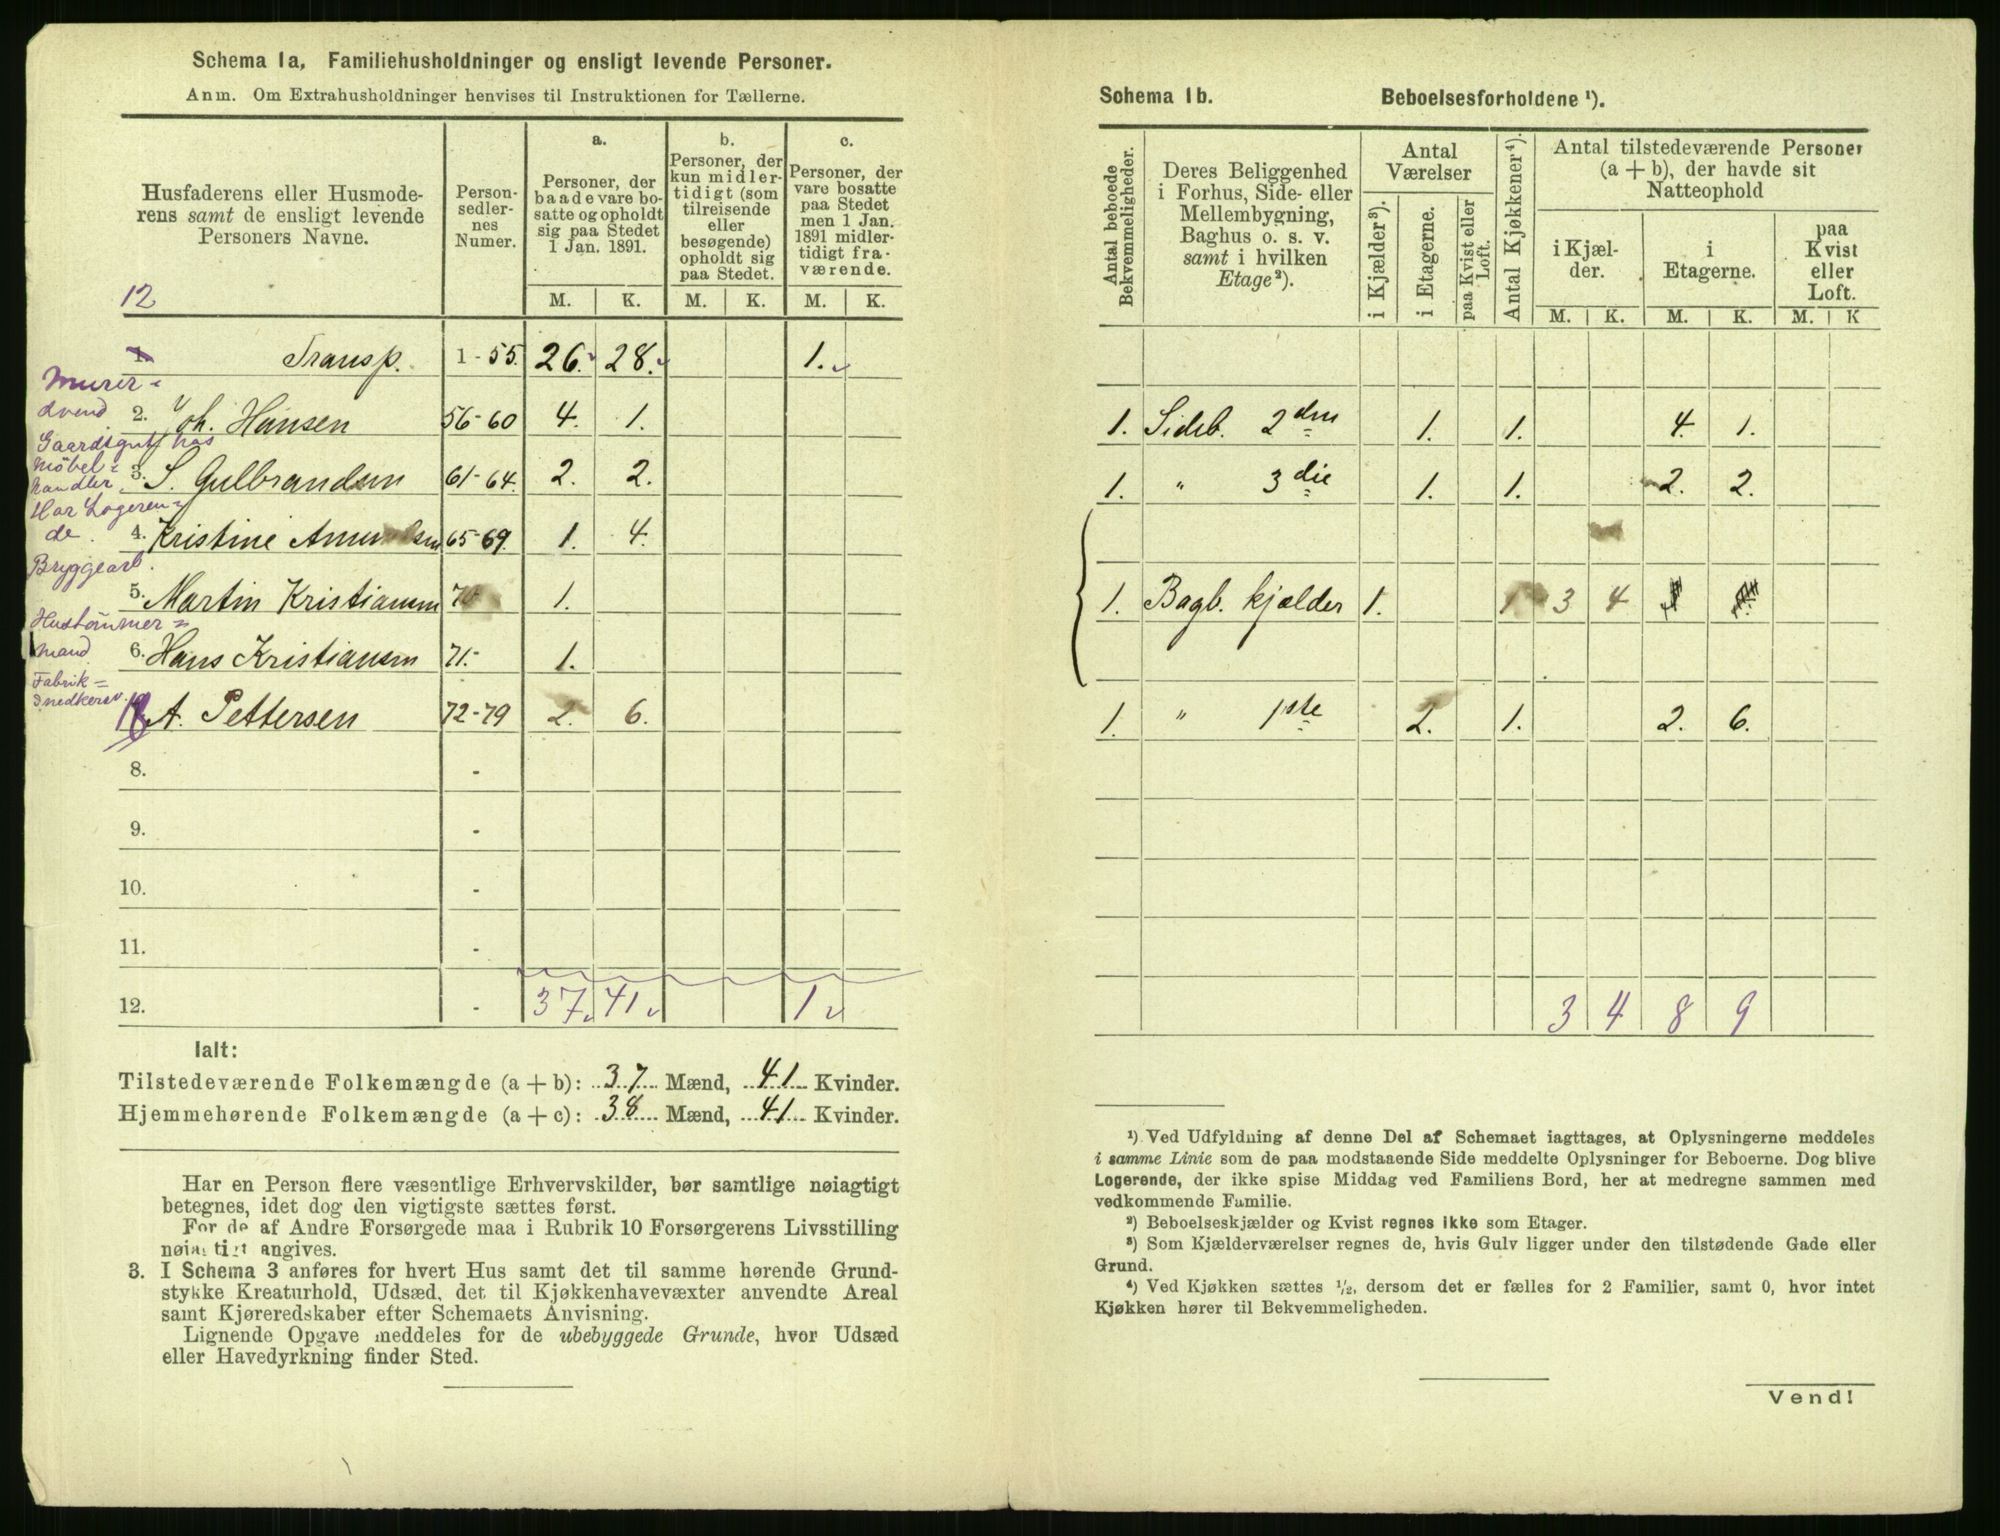 Schema 1a, Familiehusholdninger og ensligt levende Personer.
Anm. Om Extrahusholdninger henvises til Instruktionen for Tællerne.
Husfaderens eller Husmode-
rens samt de ensligt levende
Personers Navne.
12
Person-
sedler-
nes
Numer.
a.
Personer, der
baade vare bo-
satte og opholdt
sig paa Stedet
1 Jan. 1891.
b.
Personer, der
kun midler-
tidigt (som
tilreisende
eller
besøgende)
opholdt sig
paa Stedet.
c.
Personer, der
vare bosatte
paa Stedet
men 1 Jan.
1891 midler-
tidigt fra-
værende.
M. K. M. K. M. K.
1. Transp. 1 - 55. 26. 28. 1.
Murer=
svend 2. Joh. Hansen 56-60 4. 1.
Gaardsgut hos
Möbel=
handler 3. S. Gulbrandsen 61-64. 2. 2.
Har Logeren=
de. 4. Kristine 65-69. 1. 4.
Bryggearb.
5. Martin Kristiansen 70 1.
Hustömmer=
mand 6. Hans Kristiansen 71.- 1.
Fabrik=
snedkersv. A. Pettersen 72-79 2. 6.
8. -
9. -
10. -
11. -
12. - 37. 41. 1
Ialt:
Tilstedeværende Folkemængde (a + b): 37 Mænd, 41 Kvinder.
Hjemmehørende Folkemængde (a + c): 38 Mænd, 41 Kvinder.
Har en Person flere væsentlige Erhvervskilder, bør samtlige nøiagtigt
betegnes, idet dog den vigtigste sættes først.
For de af Andre Forsørgede maa i Rubrik 10 Forsørgerens Livsstilling
nøiagtigt angives.
3. I Schema 3 anføres for hvert Hus samt det til samme hørende Grund-
stykke Kreaturhold, Udsæd, det til Kjøkkenhavevæxter anvendte Areal
samt Kjøreredskaber efter Schemaets Anvisning.
Lignende Opgave meddeles for de ubebyggede Grunde, hvor Udsæd
eller Havedyrkning finder Sted.
Schema 1b. Beboelsesforholdene ¹).
Antal beboede
Bekvemmeligheder.
Deres Beliggenhed
i Forhus, Side- eller
Mellembygning,
Baghus o. s. v.
samt i hvilken
Etage ²).
Antal
Værelser
i Kjælder ³).
i Etagerne.
paa Kvist eller
Loft.
Antal Kjøkkener ⁴).
Antal tilstedeværende Personer
(a + b), der havde sit
Natteophold
i Kjæl-
der.
i
Etagerne.
paa
Kvist
eller
Loft.
M. K. M. K. M. K
1. Sideb. 2den 1. 1. 4. 1.
1. " 3die 1. 1. 2. 2.
1. Bagb. kjælder 1. 1 3 4
1. " 1ste 2. 1. 2. 6.
3 4 8 9
¹) Ved Udfyldning af denne Del af Schemaet iagttages, at Oplysningerne meddeles
i samme Linie som de paa modstaaende Side meddelte Oplysninger for Beboerne. Dog blive
Logerende, der ikke spise Middag ved Familiens Bord, her at medregne sammen med
vedkommende Familie.
²) Beboelseskjælder og Kvist regnes ikke som Etager.
³) Som Kjælderværelser regnes de, hvis Gulv ligger under den tilstødende Gade eller
Grund.
⁴) Ved Kjøkken sættes ½, dersom det er fælles for 2 Familier, samt 0, hvor intet
Kjøkken hører til Bekvemmeligheden.
Vend!